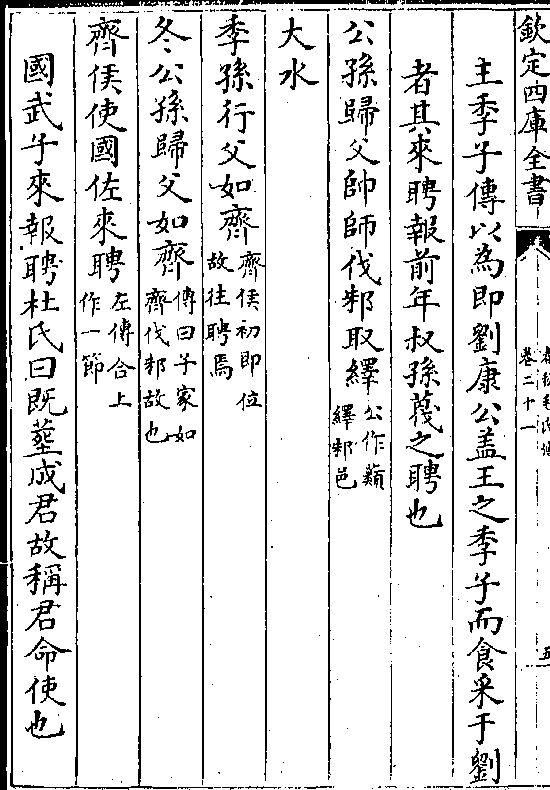 欽定四庫全書
卷二十一
五
王季子傳以為即劉康公盖王之季子而食采于劉
者其來聘報前年叔孫蔑之聘也
公孫歸父帥師伐邾取繹公作蘱
繹邾邑
大水
季孫行父如齊齊侯初即位
故往聘焉
冬公孫歸父如齊傳曰子家如
齊伐邾故也
齊侯使國佐來聘左傳合上
作一節
國武子來報聘杜氏曰既塟成君故稱君命使也